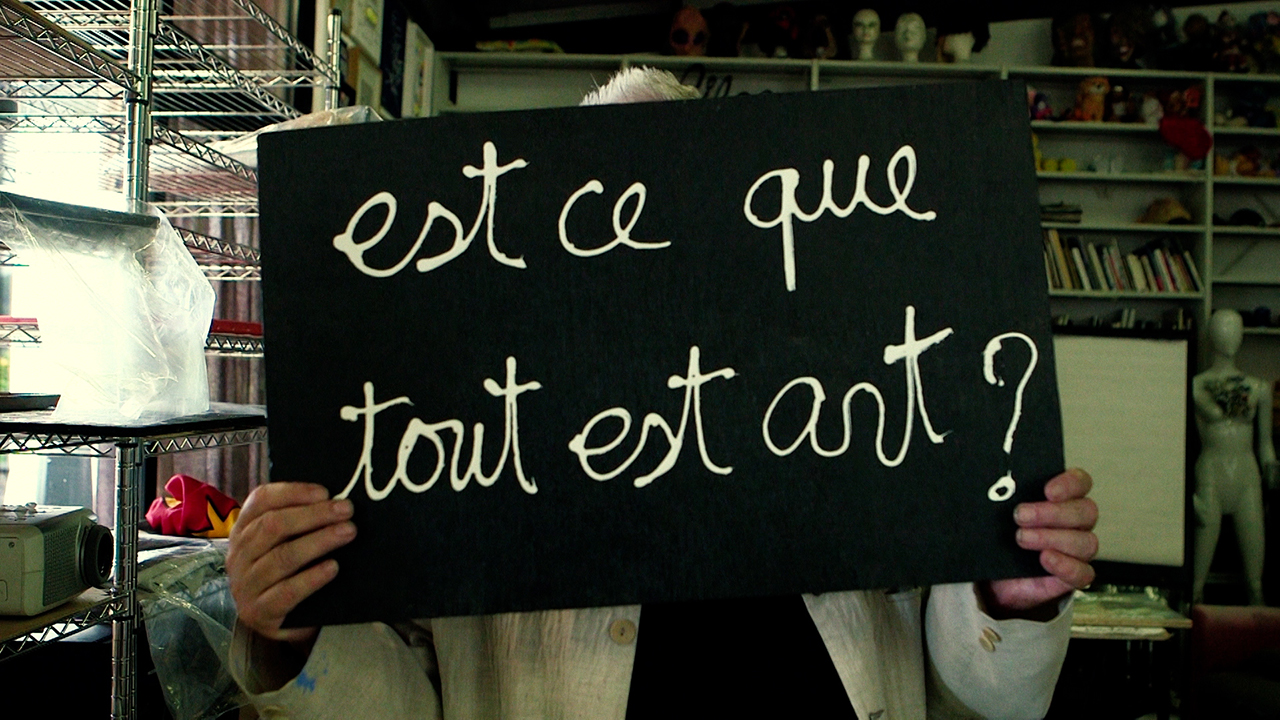 est ce que
tout est art ?